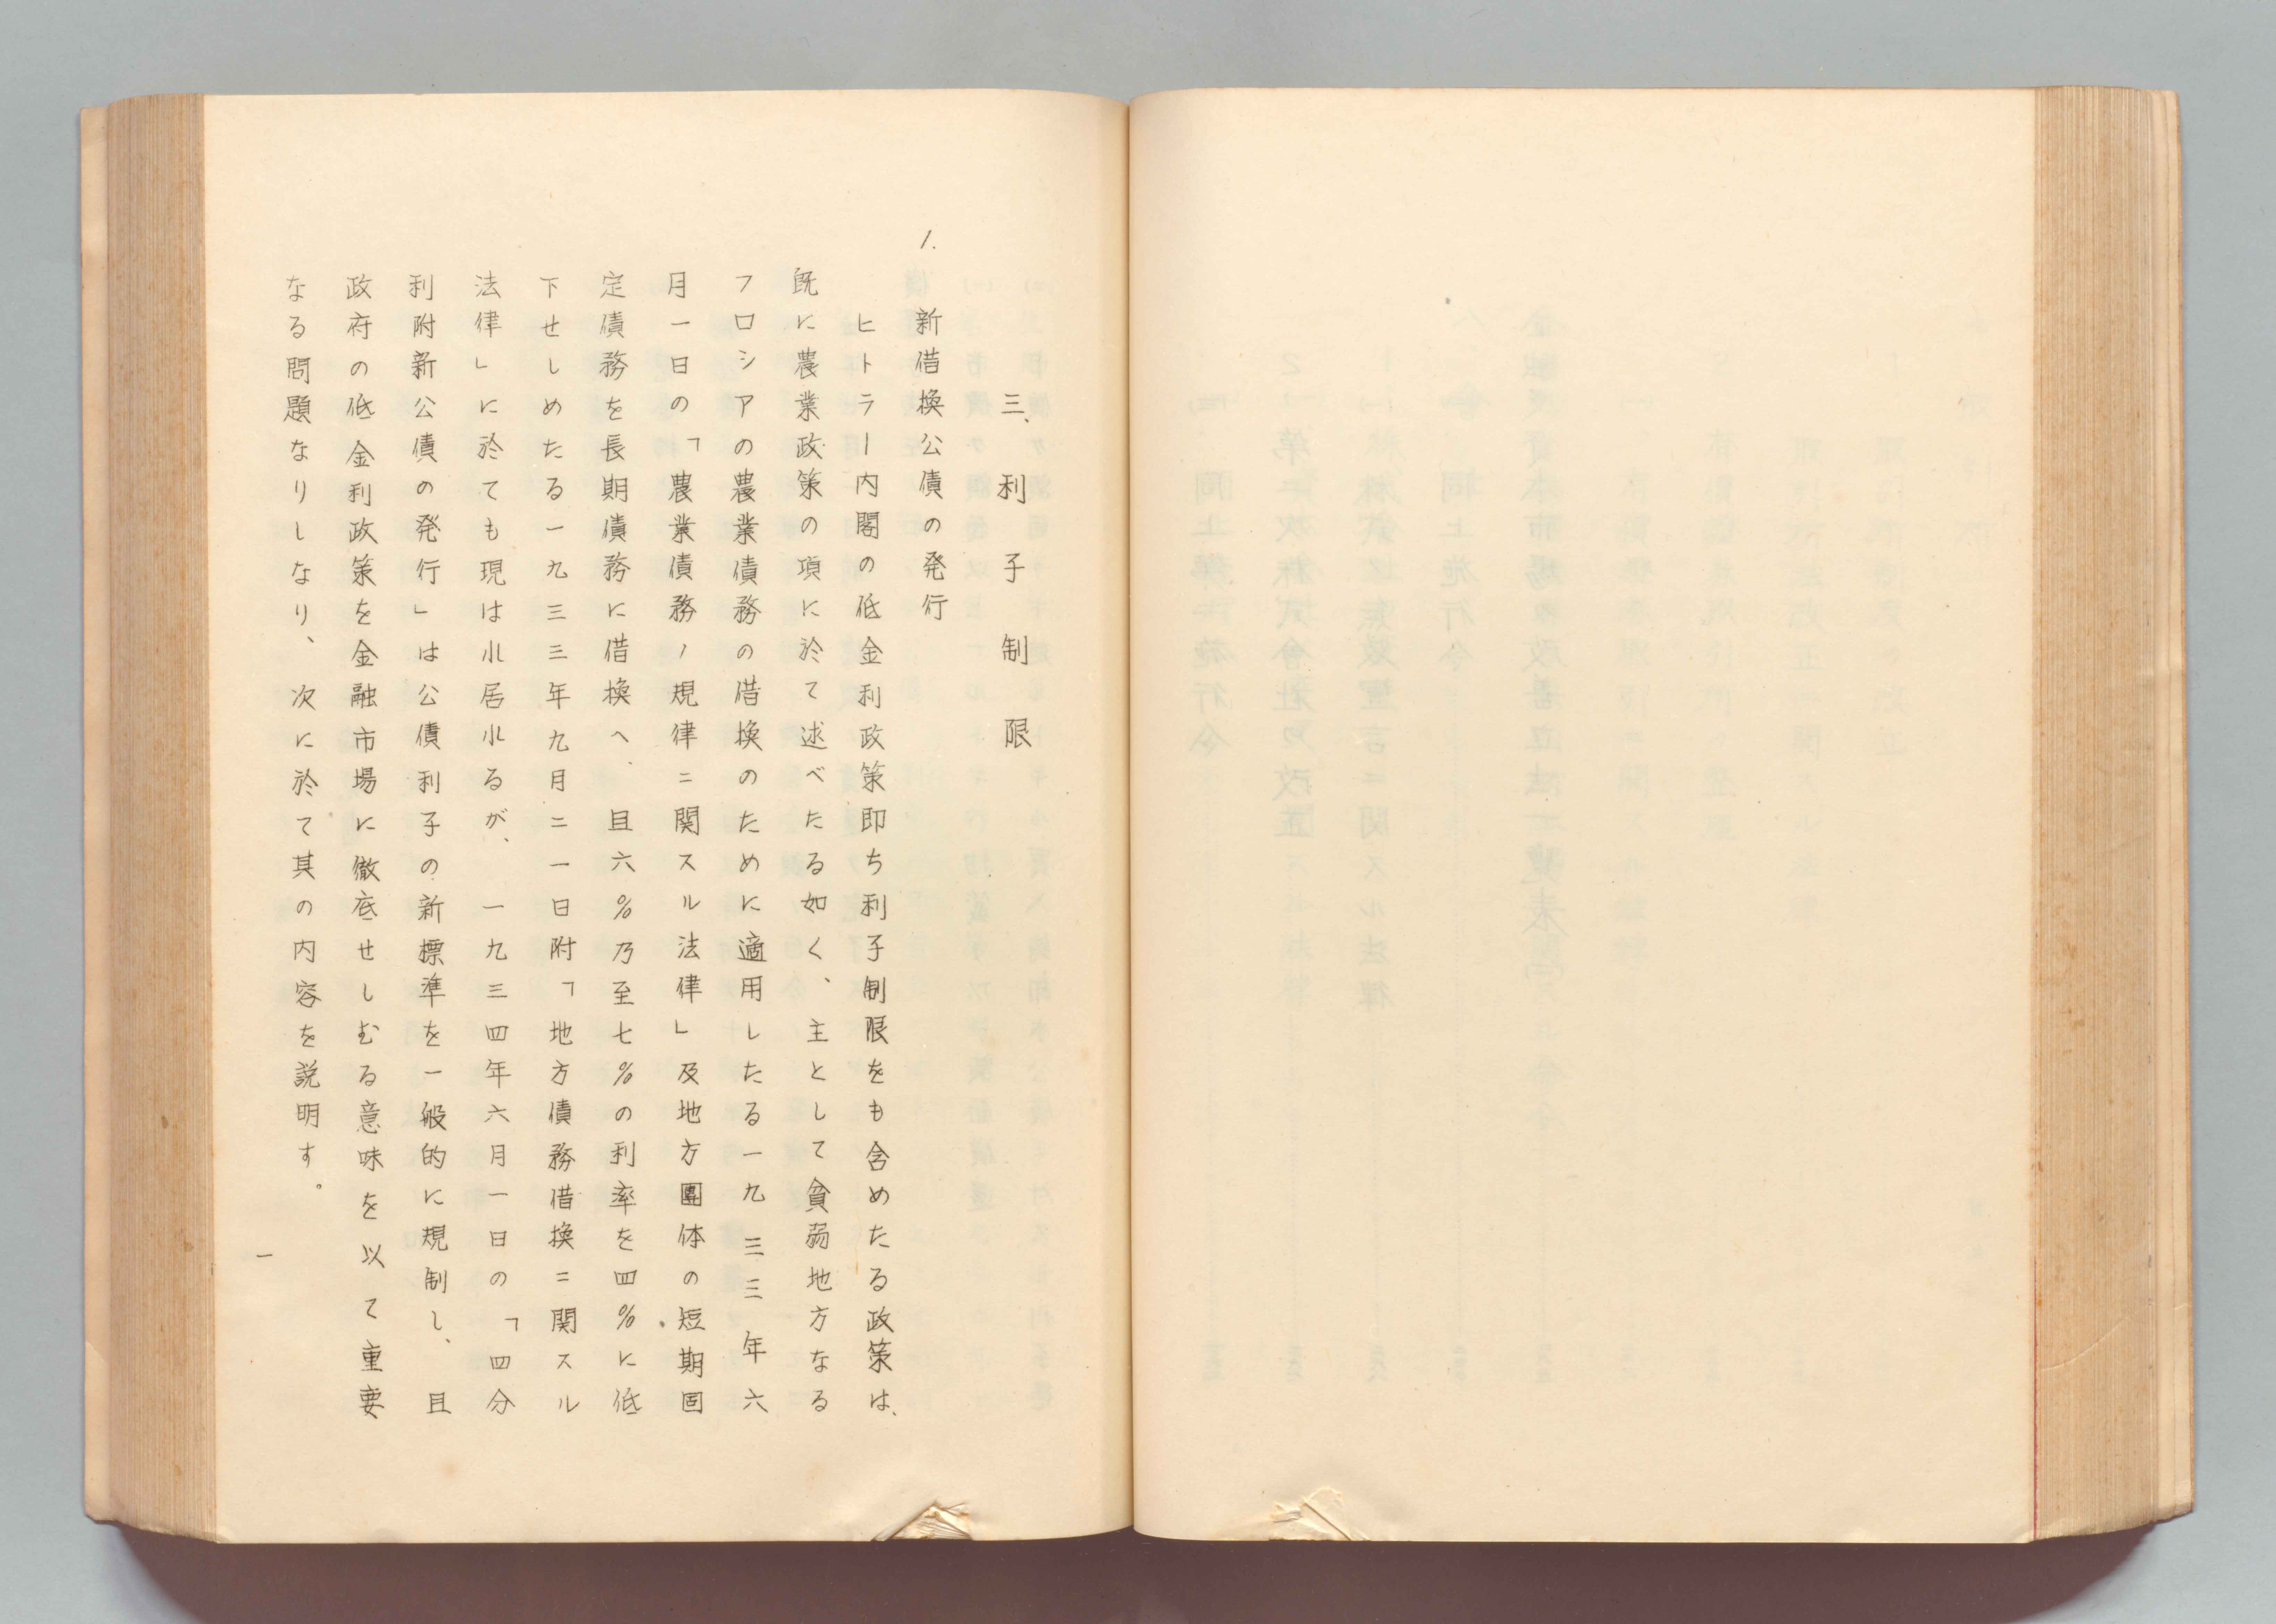 三、利子制限
1. 新借換公債の発行
ヒトラー内閣の低金利政策即ち利子制限をも含めたる政策は、
既に農業政策の項に於て述べたる如く、主として貧弱地方なる
フロシアの農業債務の借換のために適用したる一九三三年六
月一日の「農業債務ノ規律ニ関スル法律」及地方團体の短期固
定債務を長期債務に借換へ、且六%乃至七%の利率を四%に低
下せしめたる一九三三年九月二一日附「地方債務借換ニ関スル
法律」に於ても現は小居小るが、一九三四年六月一日の「四分
利附新公債の発行」は公債利子の新標準を一般的に規制し、且
政府の低金利政策を金融市場に徹底せしむる意味を以て重要
なる問題なりしなり、次に於て其の内容を説明す。
一